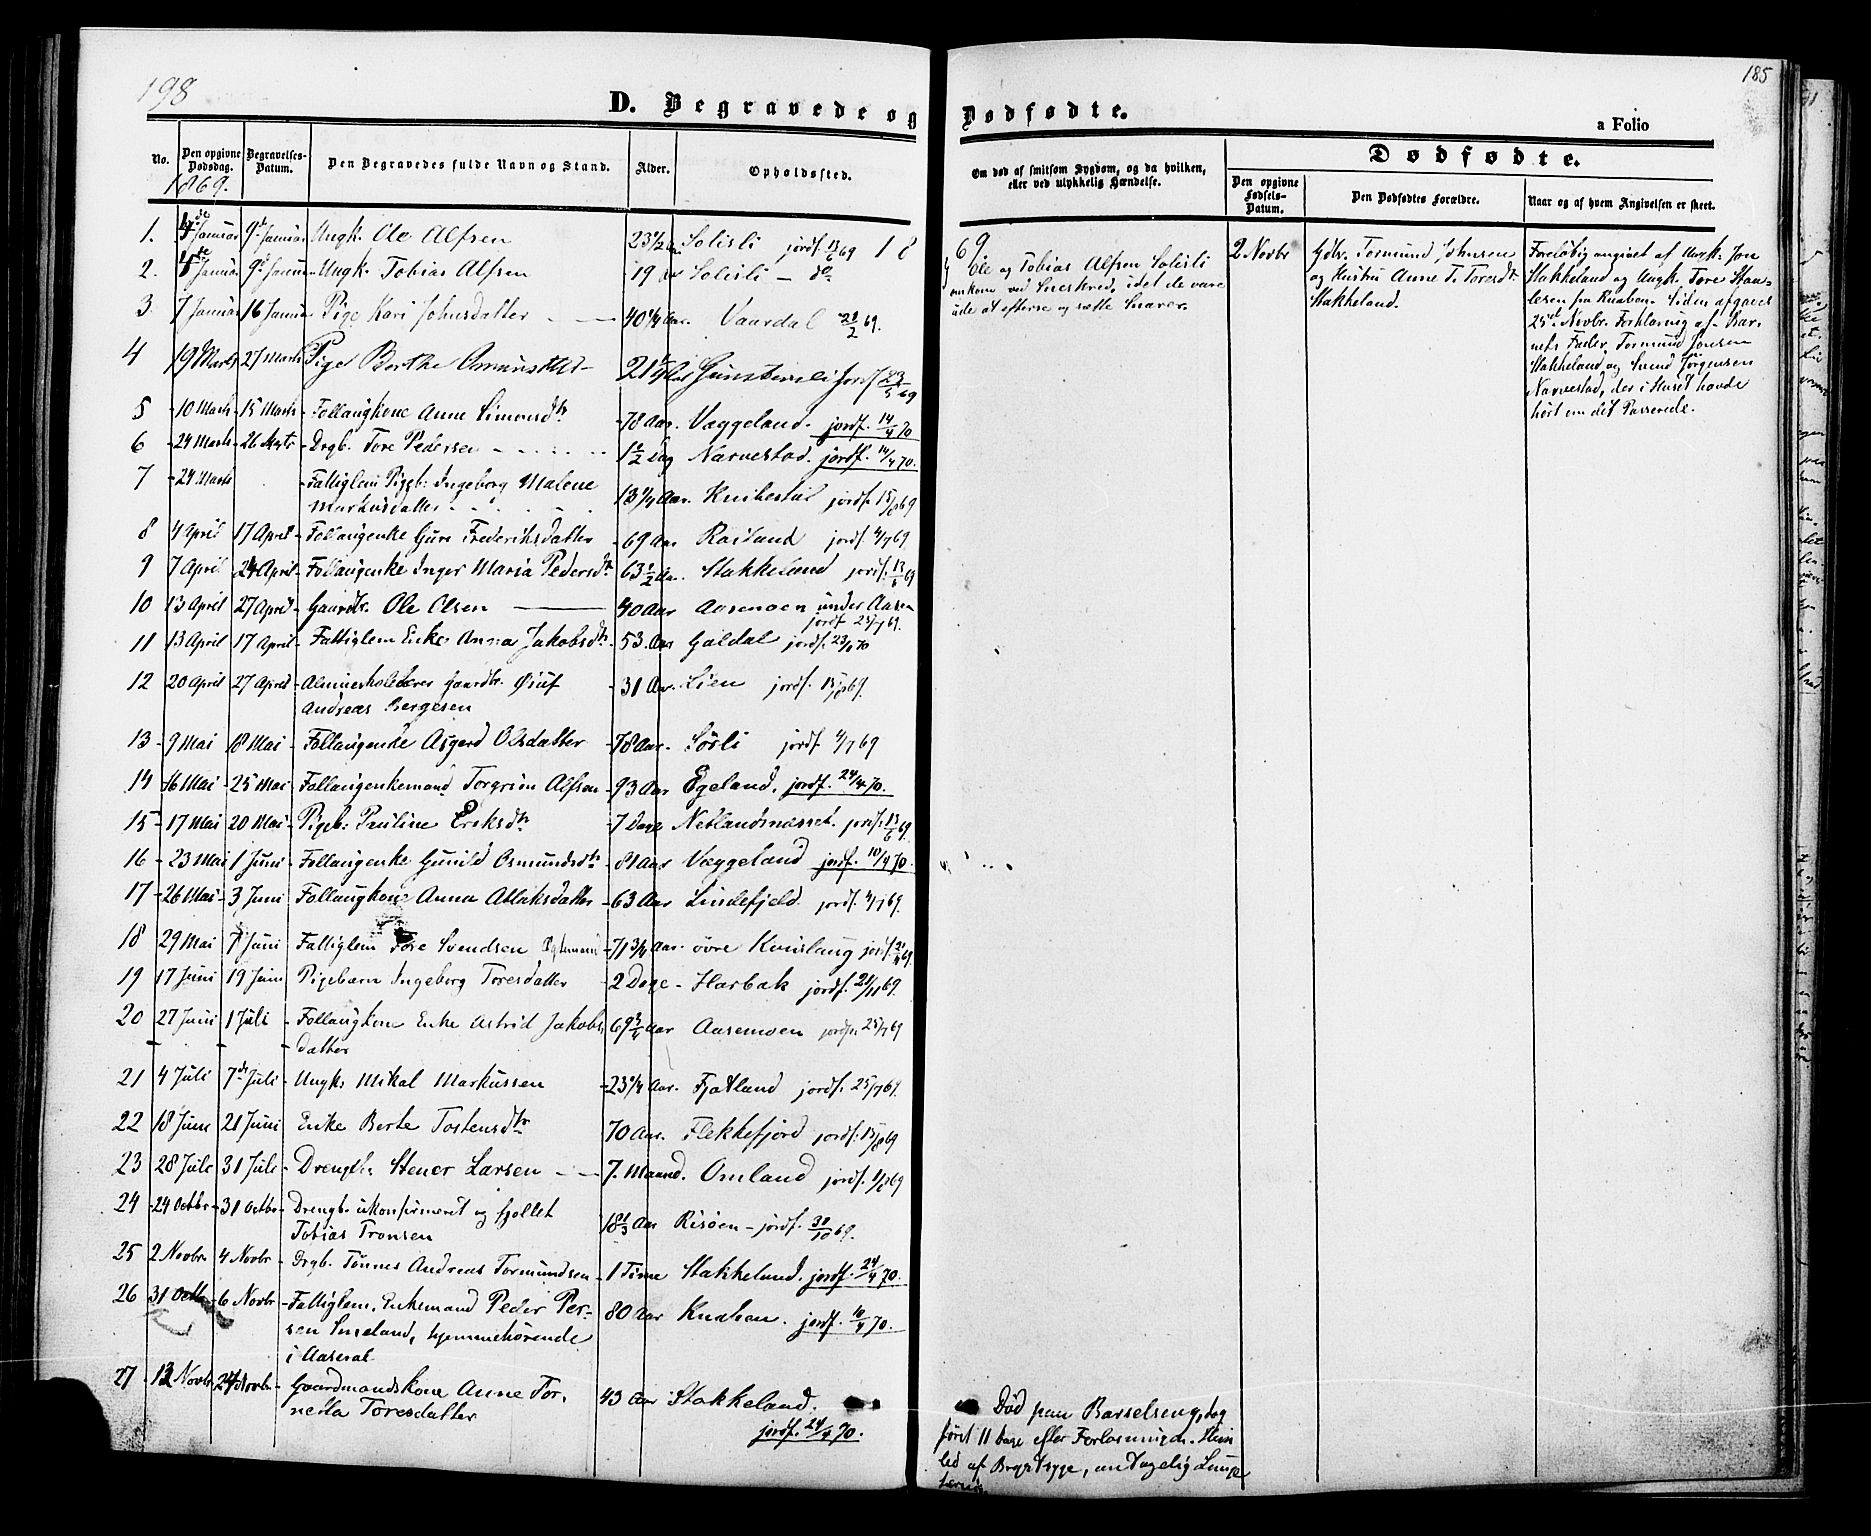 198
185
D. Begravede og Dødfødte.
a Folio
No. Den opgivne Dødsdag. Begravelses-Datum. Den Begravedes fulde Navn og Stand. Alder. Opholdssted.
Om død af smitsom Sygdom, og da hvilken, eller ved ulykkelig Hændelse.
Dødfødte.
Den opgivne Fødsels-Datum. Den Dødfødtes Forældre. Naar og af hvem Angivelsen er skeet.
1869.
1869
1. Januar 9de Januar Ungk. Ole Alfsen 23 1/2 Solisli jordf. 13/6 69
2. Januar 9de Januar Ungk. Tobias Alfsen 19 Solisli – do
3. 7 Januar 16 Januar Pige Kari Johnsdatter 40 1/4 Aar. Vaardal 28/2 69.
4 19 Marts 27 Marts Pige Berthe 21 Jordf 23/5 69
5 10 Marts 15 Marts Follaugkone Anne Simonsdtr 78 Aar. Væggeland. jordf. 14/4 70
6 24 Marts 26 Marts Drgb. Tore Pedersen 1 1/2 Dag Narvestad. jordf. 14/4 70.
7 24 Marts Fattiglem Pigeb: Ingeborg Malene
Markusdatter 13 1/4 Aar. jordf. 15/8 69
8 4 April 17 April Follaugenke Guro Frederiksdatter 69 Aar Roiland jordf. 4/7 69
9 7 April 24 April Follaugenke Inger Maria Pedersdtr 63 1/2 Aar. Stakkeland jordf. 13/6 69
10 13 April 27 April Gaardbr. Ole Olsen 40 Aar Aasemoen under Aasen
jordf 25/7 69.
11 13 April 17 April Fattiglem Enke Anna Jakobsdtr 53 Aar Galdal jordf.
12 20 April 27 April Almueskolelærer Gaardbr.
Andreas Bergesen 31 Aar. Lien jordf. 15/8 69.
13 9 Mai 18 Mai Follaugenke Asgerd Olsdatter 78 Aar. Sørli jordf 4/7 69
14 16 Mai 25 Mai Follaugenkemand Torgrim Alfsen 93 Aar Egeland. jordf. 24/4 70.
15 17 Mai 20 Mai Pigeb: Pauline Eriksdtr 7 Dage Netlandsnæsset. jordf. 13/6 69.
16 23 Mai 1 Juni Follaugenke Gunild Osmundsdtr 81 Aar Væggeland jordf. 10/4 70.
17 26 Mai 3 Juni Follaugkone Anna Atlaksdatter 63 Aar Lindefjeld. jordf. 4/7 69.
18 29 Mai 7 Juni Fattiglem Tore Svendsen 71 3/4 Aar. øvre Kvinlaug
19 17 Juni 19 Juni Pigebarn Ingeborg Toresdatter 2 Dage Harbak jordf. 21/11 69.
20 27 Juni 1 Juli Follaugkone Enke Astrid Jakobs
datter 69 3/4 Aar Aasemoen jordf. 25/7 69
21 4 Juli 7de Juli Ungk. Mikal Markussen 23 1/4 Aar. Fjotland jordf. 25/7 69.
22 18 Juni 21 Juni Enke Berte Tostensdtr 70 Aar. Flekkefjord jordf. 15/8 69
23 28 Juli 31 Juli Drengb. Stener Larsen 7. Maaned. Omland jordf. 1/8 69
24 24 Octbr 31 Octbr Drengb. ukonfirmeret og fjollet
Tobias Tronsen 18 1/3 Aar Risøen – jordf. 30/10 69.
25 2 Novbr 4 Novbr Drgb. Tønnes Andreas Tormundsen 1 Time Stakkeland. jordf. 24/4 70.
26 31 Octbr 6 Novbr Fattiglem. Enkemand Peder Per-
sen hjemmehørende
i Aaseral 80 Aar Knaben. jordf. 10/4 70.
27 12 Novbr 24 Novbr Gaardmandskone Anne Tor-
netta Toresdatter 43 Aar Stakkeland.
jordf. 24/4 70.
Ole og Tobias Alfsen Solisli
omkom ved Sneskred, idet de vare
ude at efterse og sætte Snarer.
Død paa Barselseng, dog
først 11 Dage efter Forløsningen.
led af Brystsyge,
2 Novbr
Gdbr. Tormund Johnsen
og Hustru Anne T. Toresdtr
Stakkeland.
Foreløbig angivet af Ungk. Jon
Stakkeland og Ungk. Tore
fra Knaben. Siden afgaves
25de Novbr. Forklaring af Bar-
nets Fader Tormund Jonsen
Stakkeland og Svend Jørgensen
Narvestad, der i Huset havde
hørt om det Passerede.